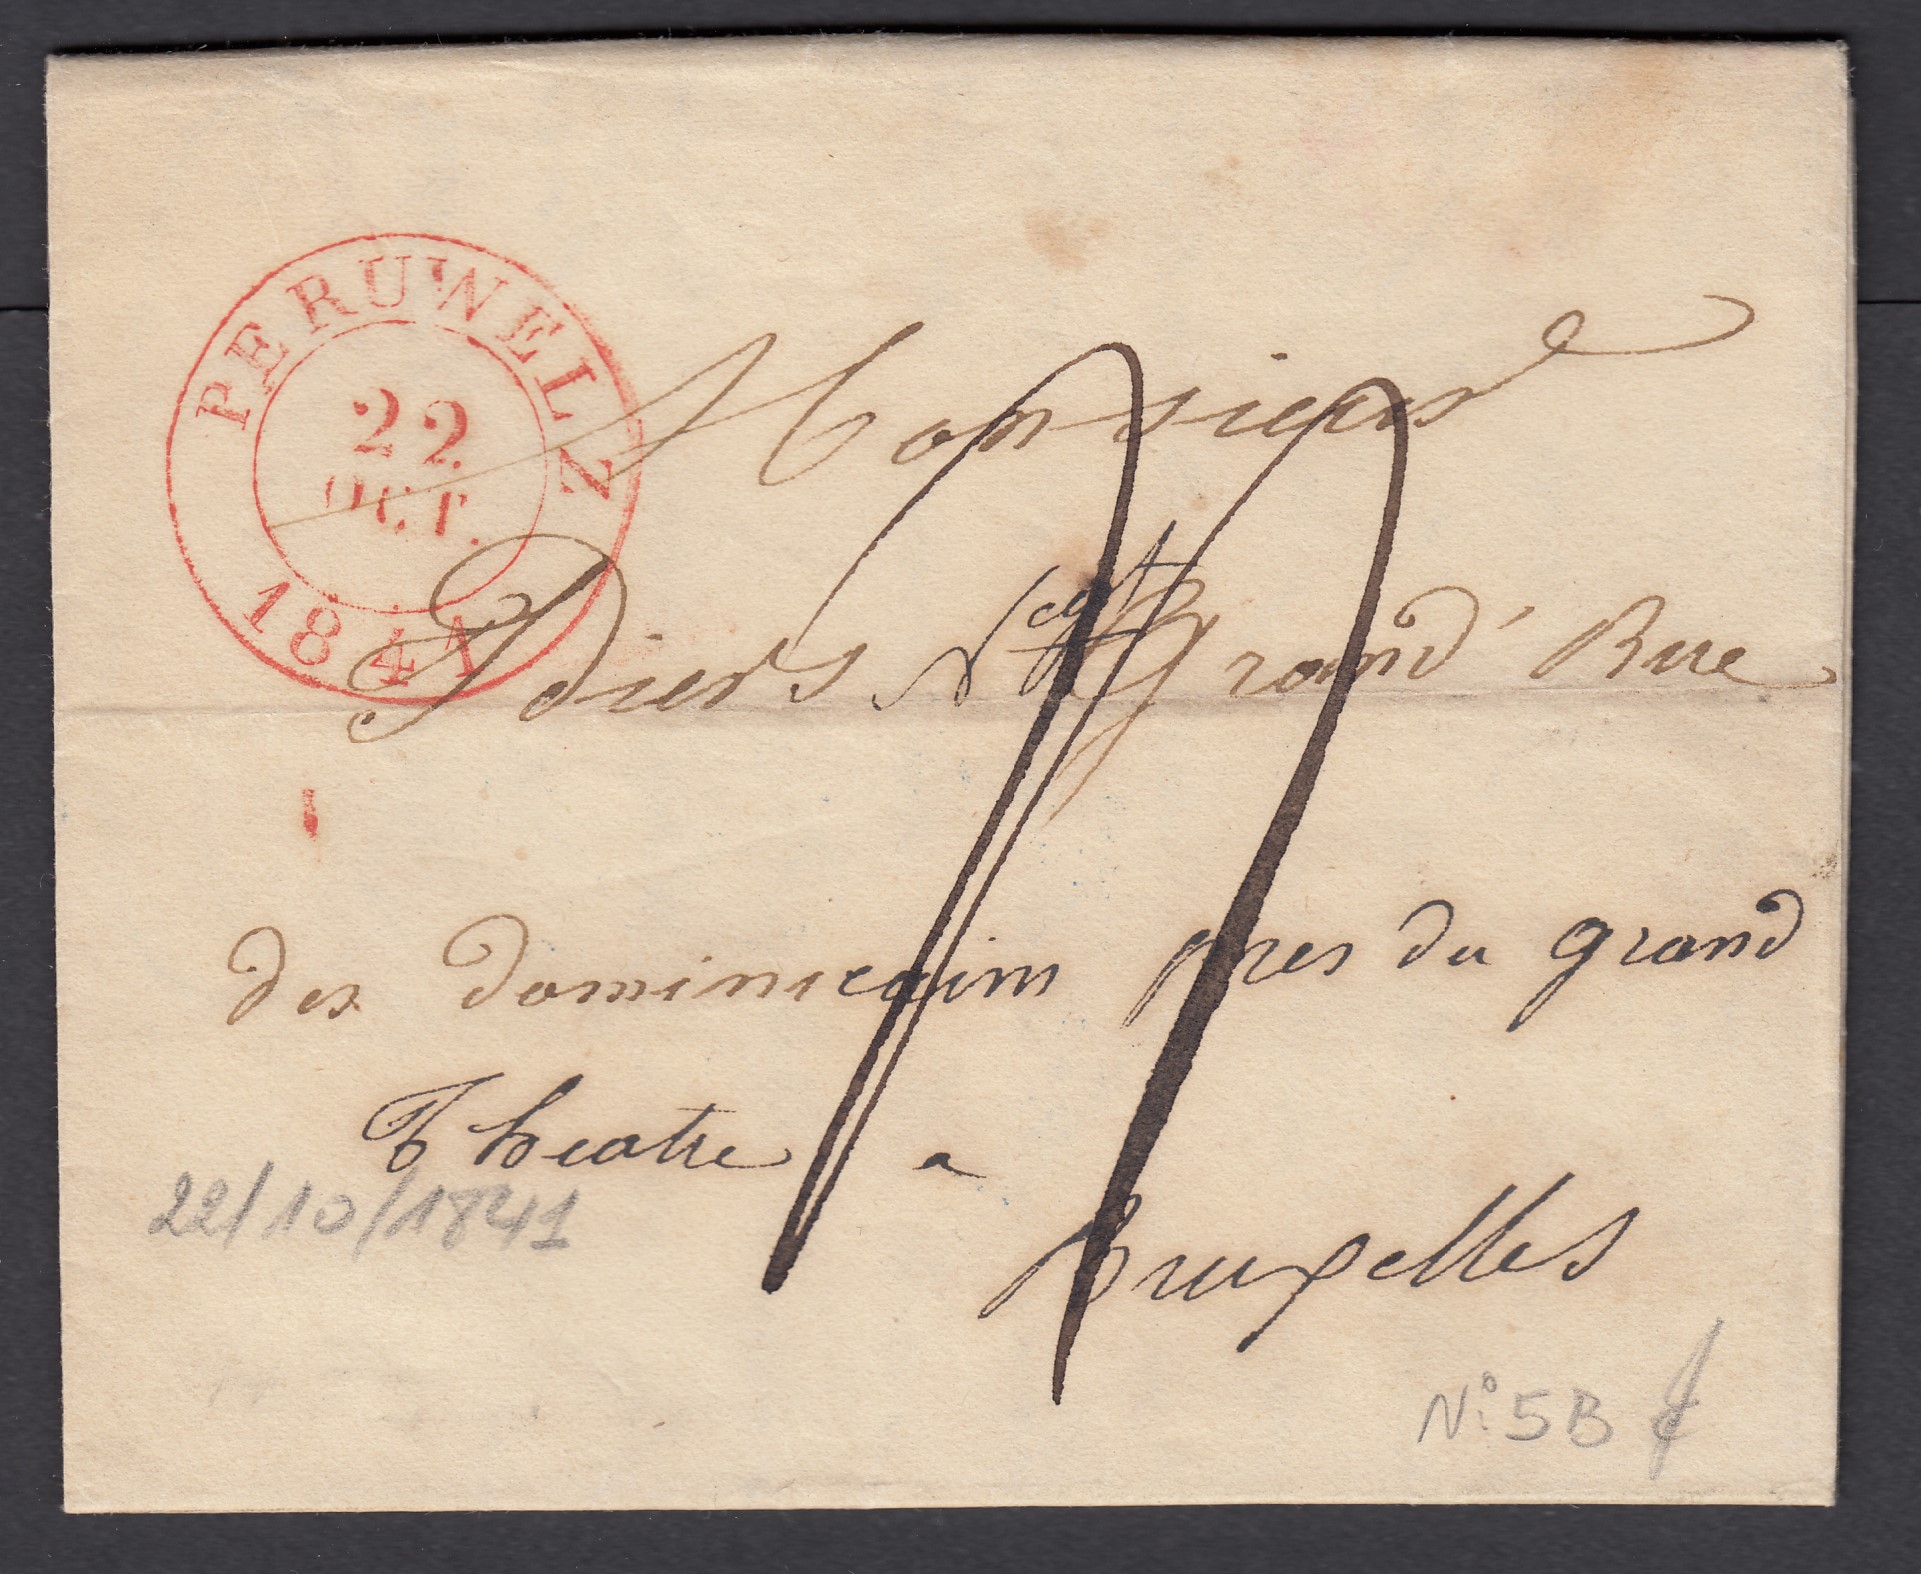 PERUWELZ
22
OCT.
1841
Monsieur
Idiers Negt Grand' Rue
des dominicains pres du grand
Theatre a
Bruxelles
22/10/1841
N° 5B